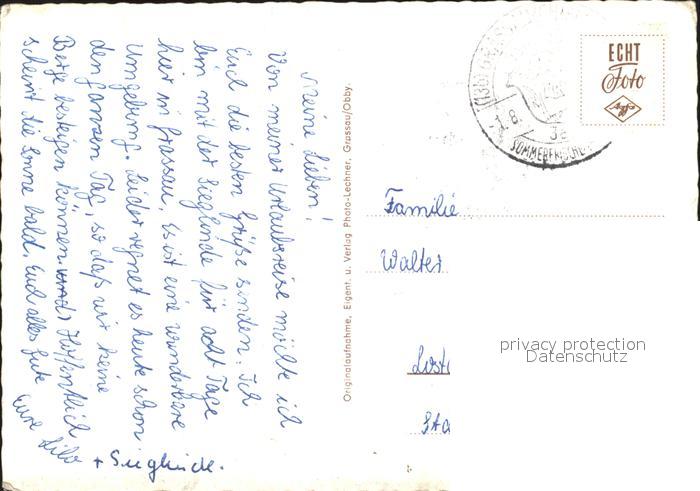 Meine Lieben!
Von meiner Urlaubsreise möchte ich
Euch die besten Grüße senden. Ich
bin mit der Sieglinde für acht Tage
hier in Grassau. Es ist eine wunderbare
Umgebung. Leider regnet es heute schon
den ganzen Tag, so daß wir keine
Berge besteigen können. Hoffentlich
scheint die Sonne bald. Euch alles Gute
Eure
+ Sieglinde.
Originalaufnahme, Eigent. u. Verlag Photo-Lechner, Grassau/Obby.
1.8.
SOMMERFRISCHE
ECHT
Foto
Agfa
Familie
Walter
privacy protection
Datenschutz